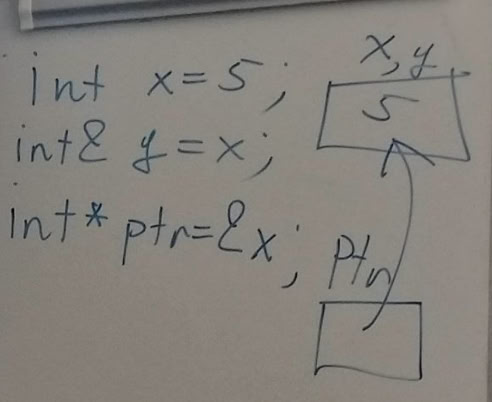 int x=5;
int& y=x;
int* ptr=&x;
x,y
5
ptr